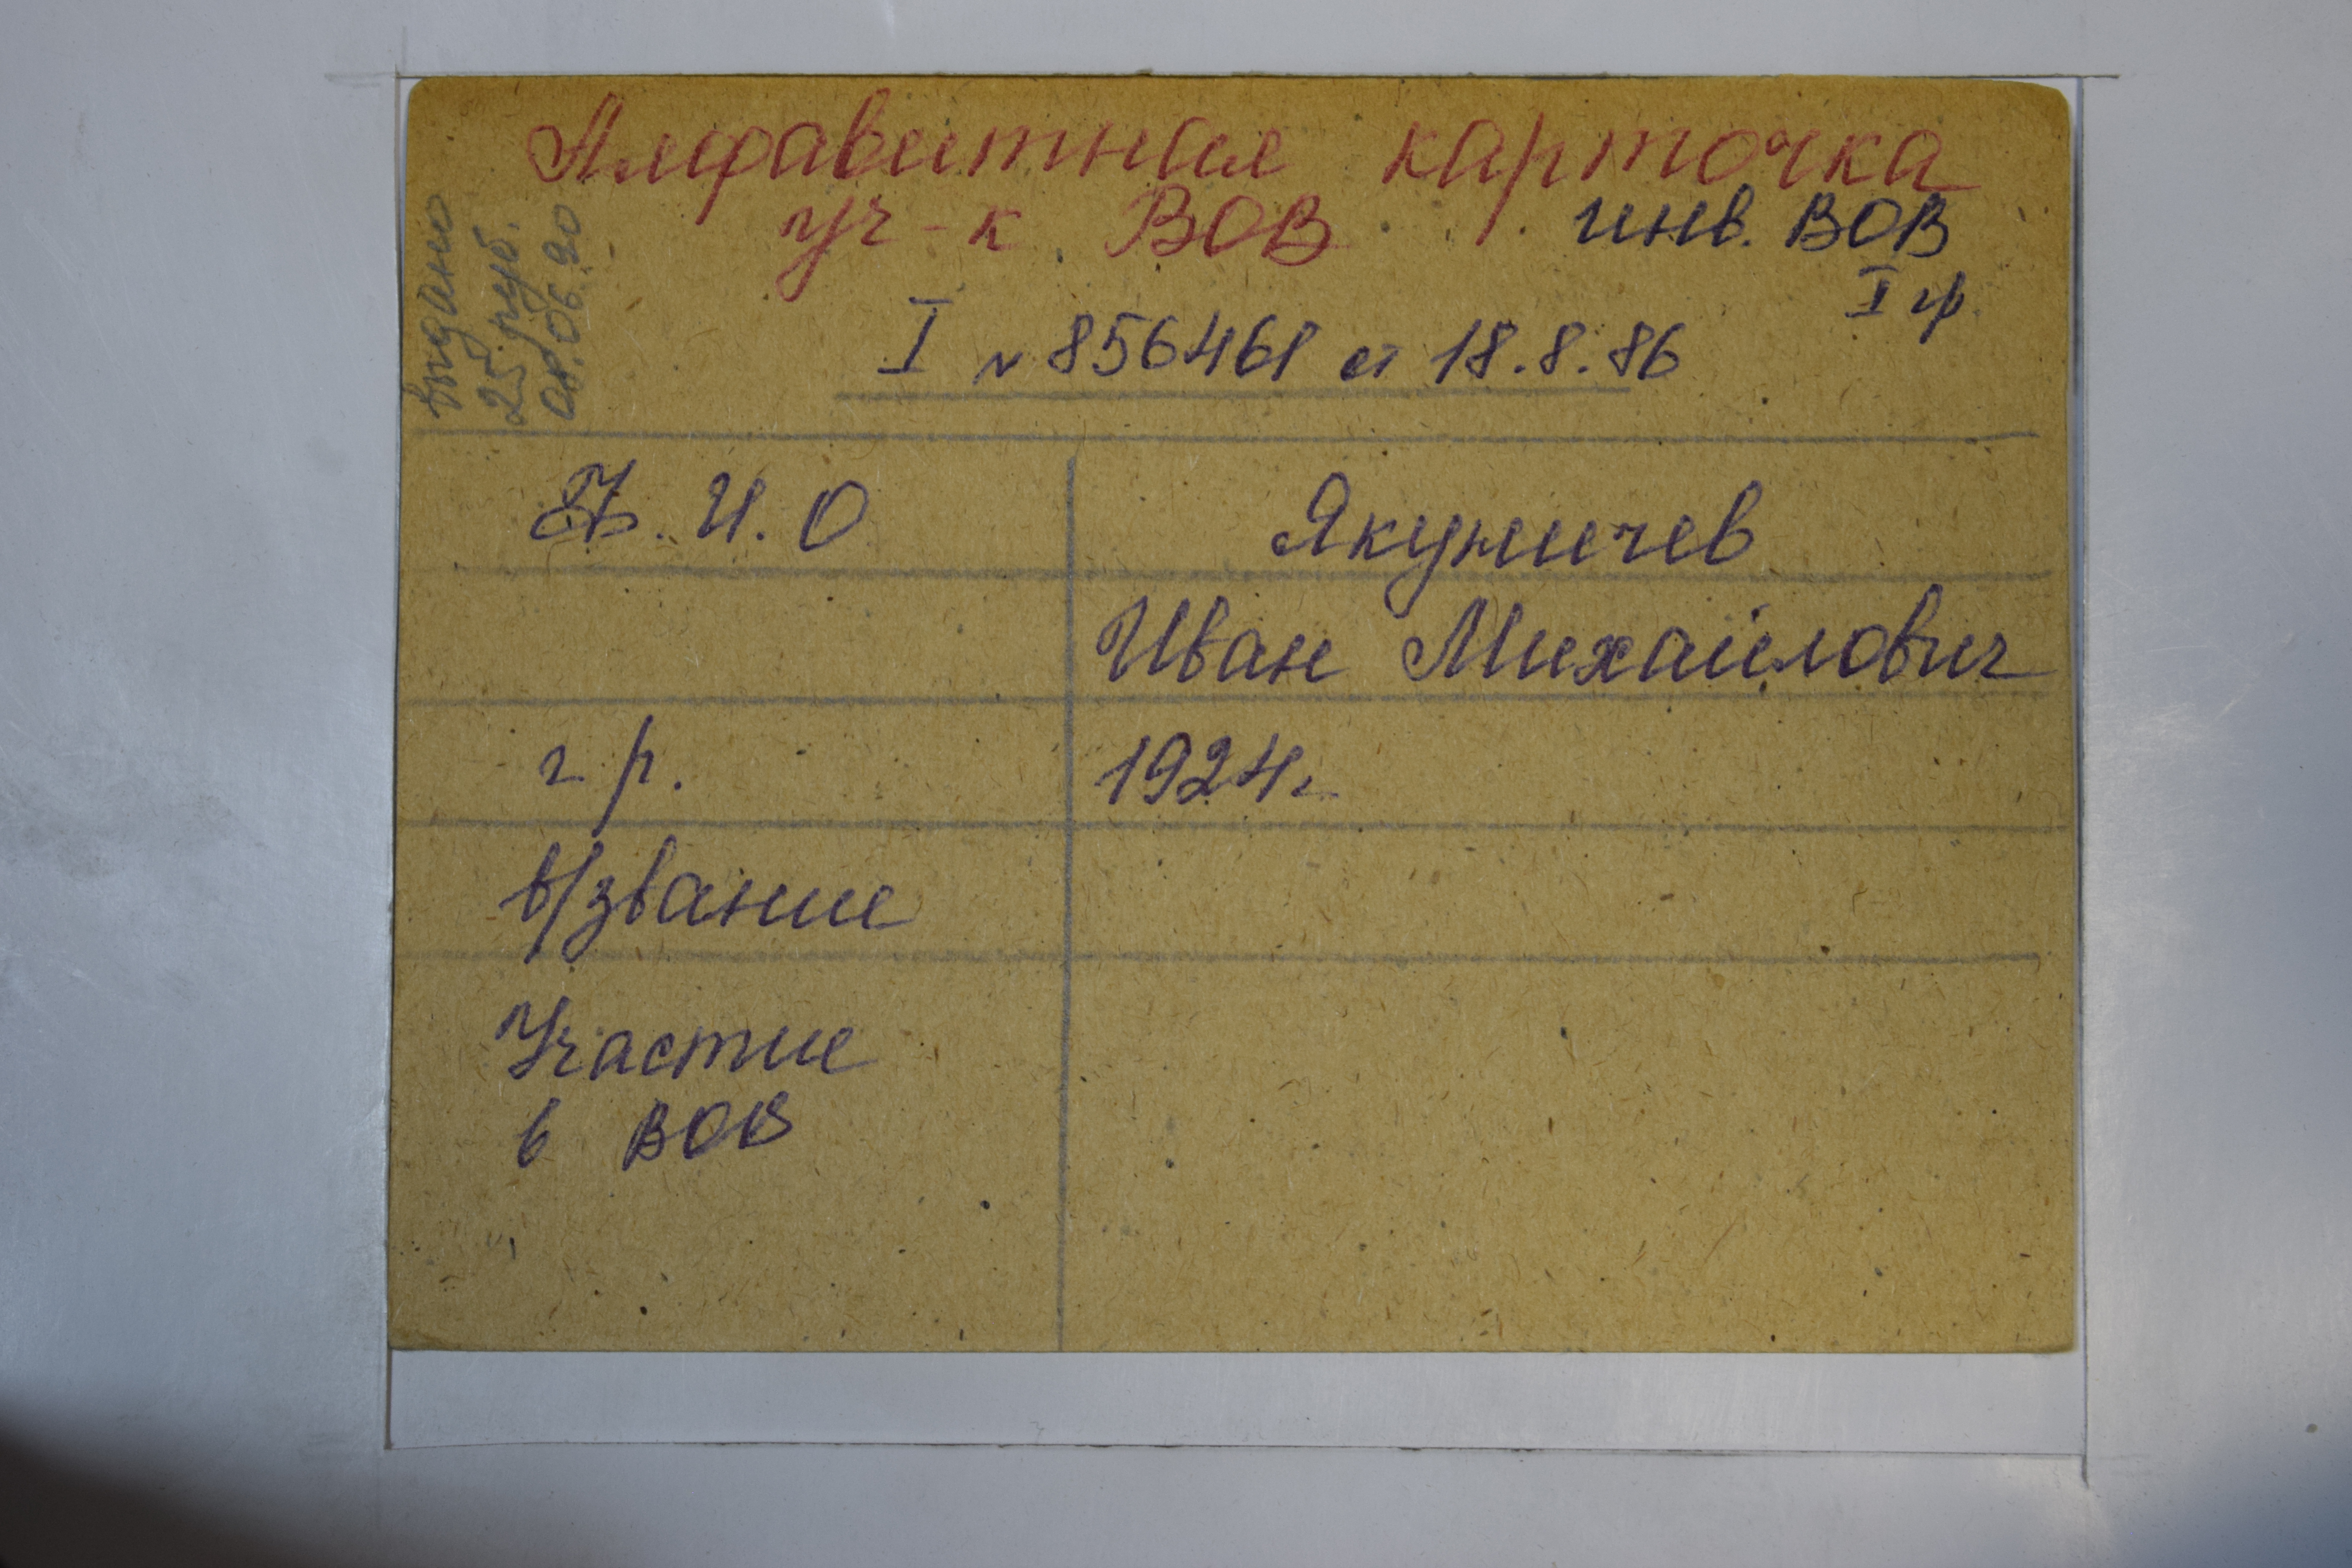 Алфавитная карточка
уч-к ВОВ инв. ВОВ
I гр.
I № 856461 от 18.8.86
выдано
25 руб.
08.06.90
Ф. И. О Якуничев
Иван Михайлович
г. р. 1924г
в/звание
Участие
в ВОВ